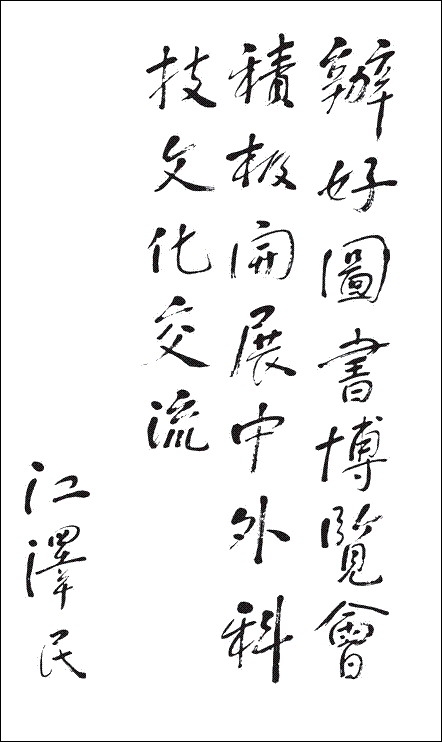 辦好圖書博覽會
積极開展中外科
技文化交流
江澤民